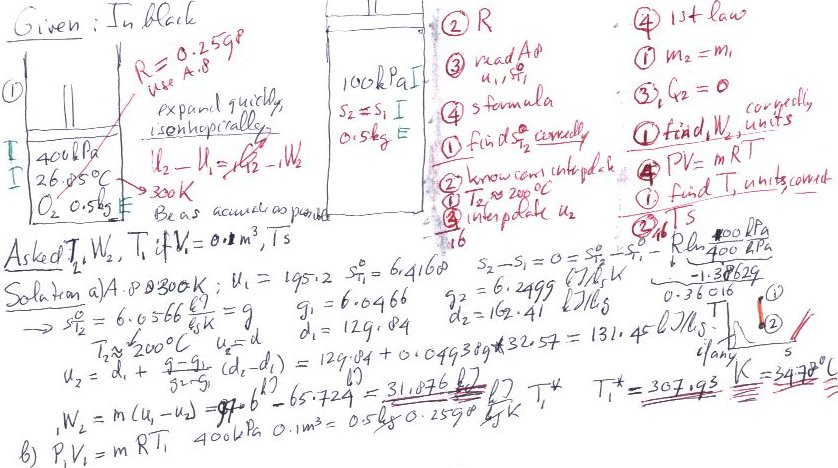 Given : In black
①
R = 0.2598
use A.8
expand quickly,
isentropically
U₂ - U₁ = ₁Q₂ - ₁W₂
I 400 kPa
I 26.85°C → 300K
O₂ 0.5 kg E
Be as accurate as possible
100 kPa I
s₂ = s₁ I
0.5 kg E
② R
③ read A8
u₁, s°T1
④ s formula
① find s°T2 correctly
② know can interpolate
① T₂ ≈ 200°C
interpolate u₂
16
④ 1st law
① m₂ = m₁
③ ₁Q₂ = 0
① find ₁W₂ correctly, units
④ PV = mRT
① find T, units, correct
② Ts
16
Asked T₂, ₁W₂, T₁ if V₁ = 0.1 m³, Ts
Solution a) A.8 @ 300K ; u₁ = 195.2 s°T1 = 6.4168 s₂ - s₁ = 0 = s°T2 - s°T1 - R ln 100 kPa / 400 kPa
-1.38629
0.36016
→ s°T2 = 6.0566 kJ/kgK = g g₁ = 6.0466 g₂ = 6.2499 kJ/kgK
T₂ ≈ 200°C u₂ = d d₁ = 129.84 d₂ = 162.41 kJ/kg
u₂ = d₁ + g-g₁/g₂-g₁ (d₂-d₁) = 129.84 + 0.049389 * 32.57 = 131.45 kJ/kg
T ① ② s
if any
₁W₂ = m(u₁-u₂) = 97.6 kJ - 65.724 kJ = 31.876 kJ
b) P₁V₁ = m RT₁ 400 kPa 0.1 m³ = 0.5 kg 0.2598 kJ/kgK T₁* T₁* = 307.93 K = 34.78°C